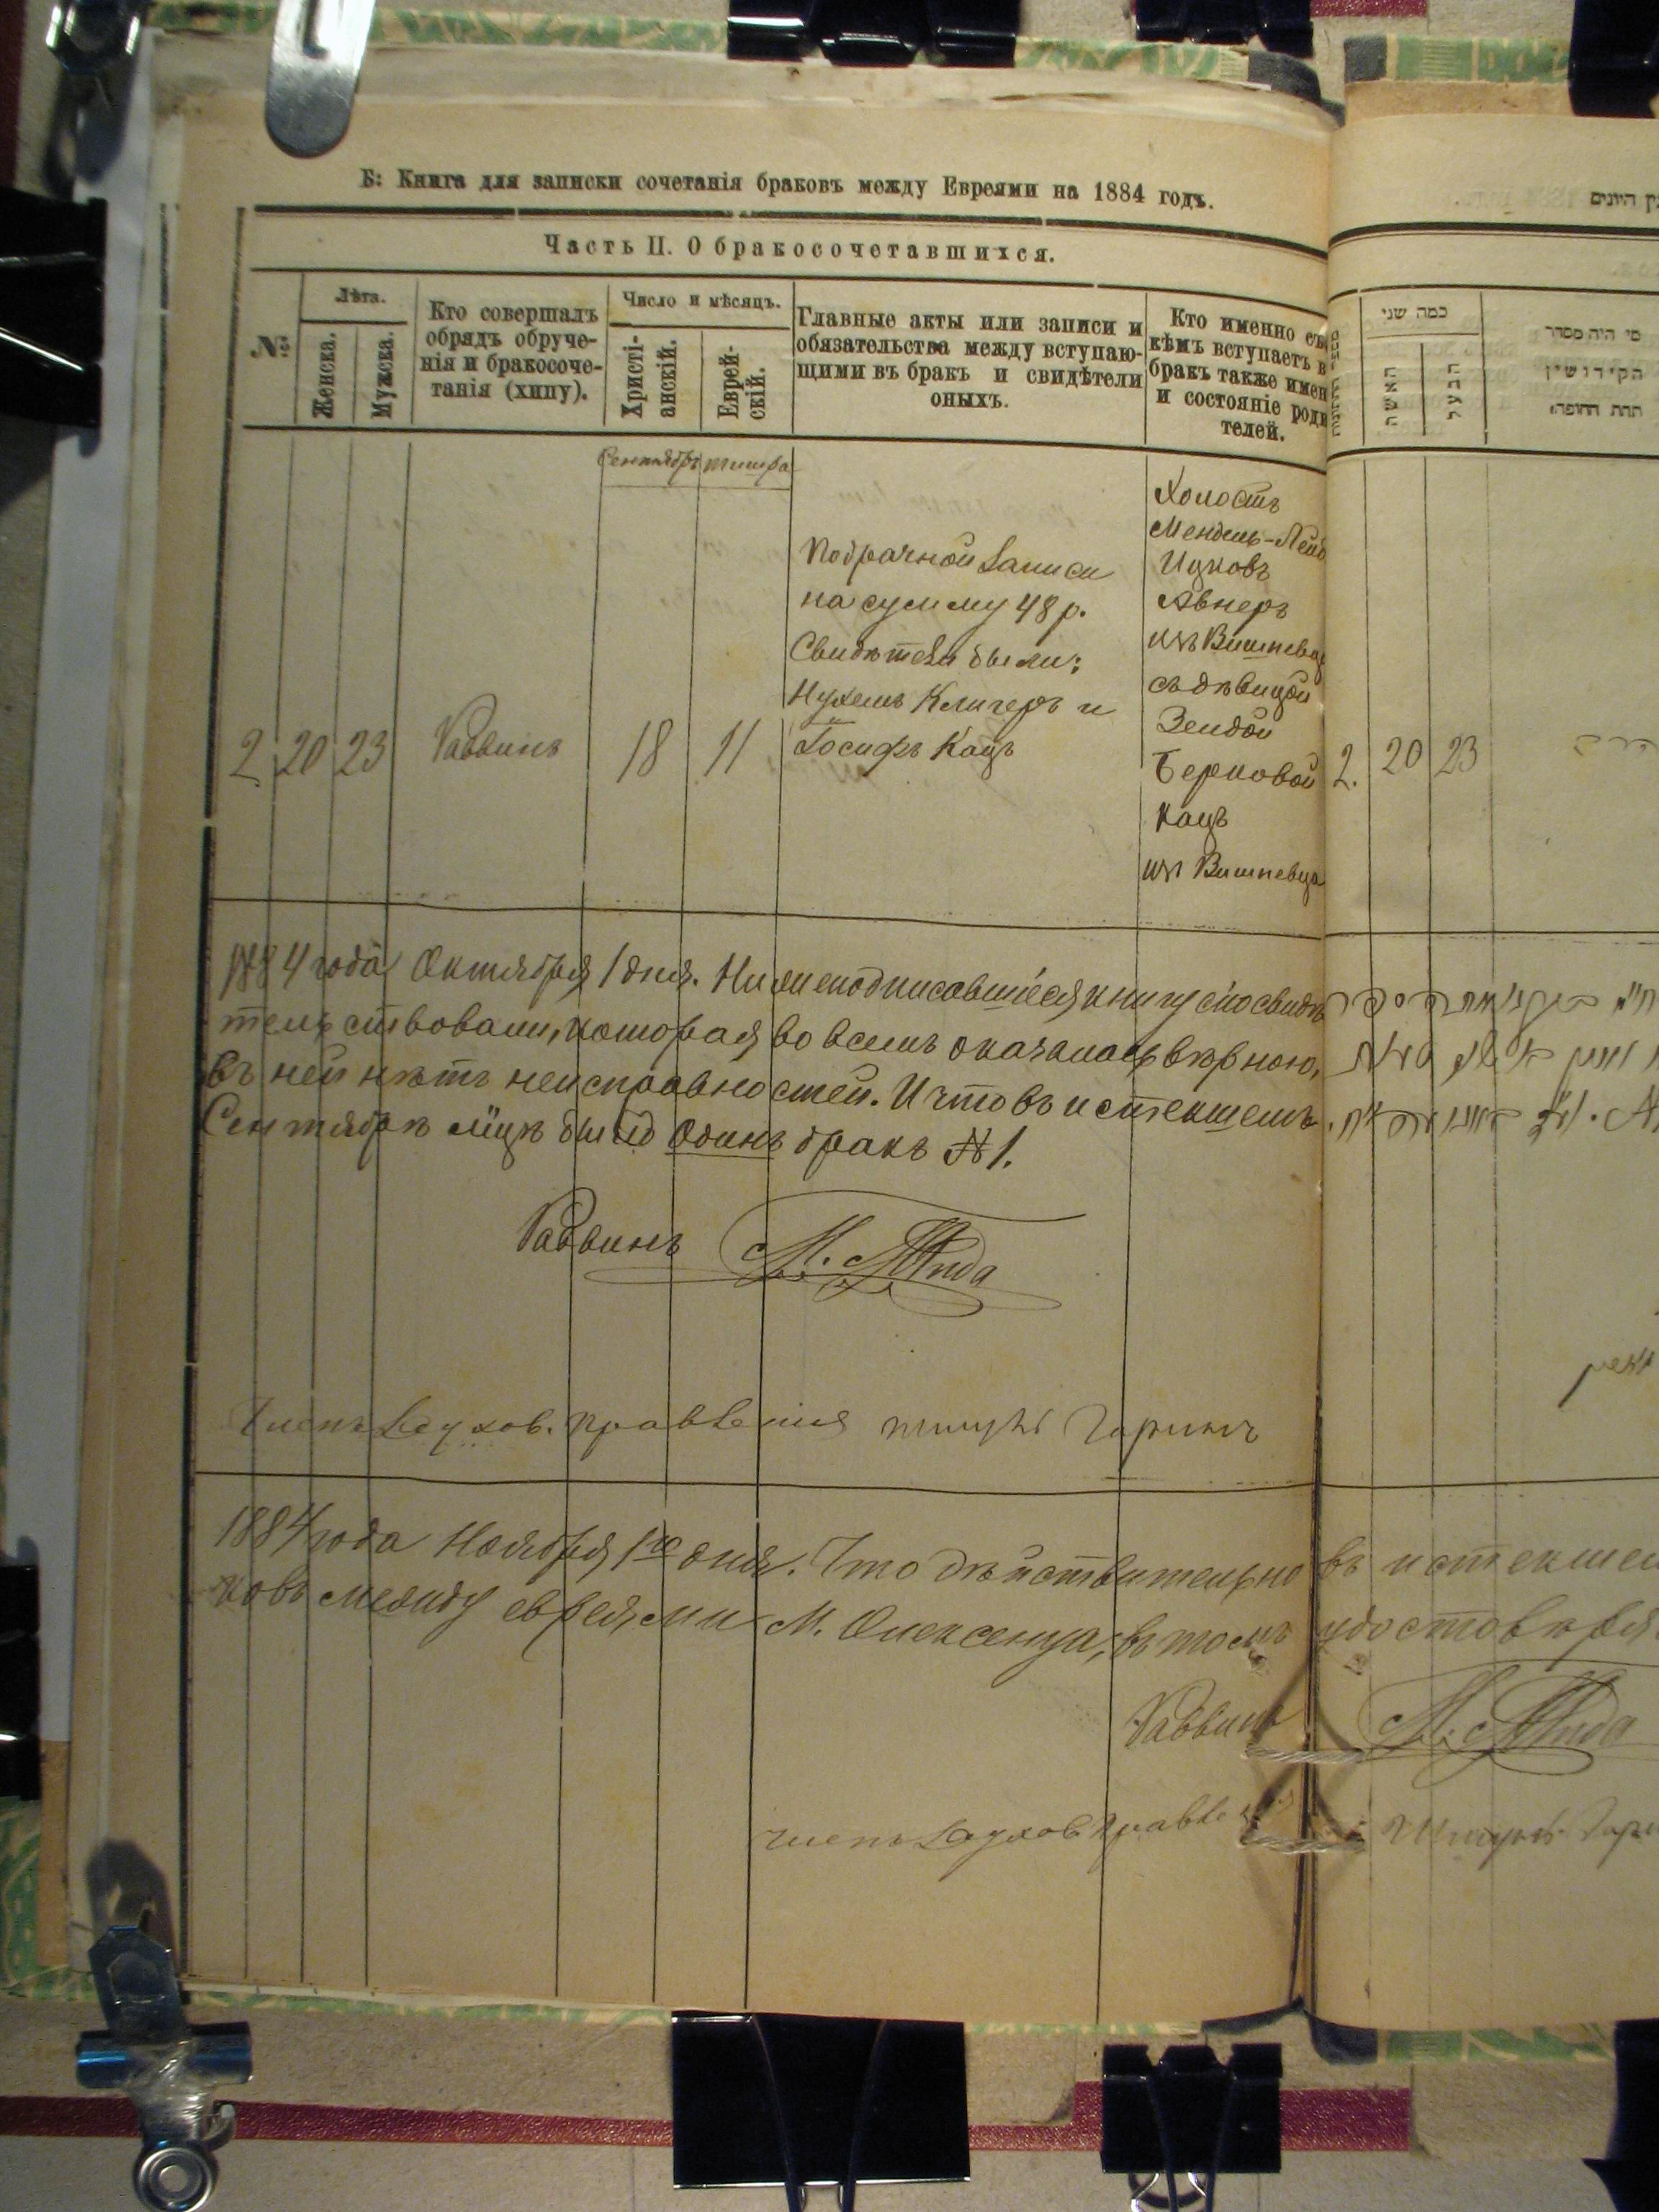 Б: Книга для записки сочетанія браковъ между Евреями на 1884 годъ.
Часть II. О бракосочетавшихся.
№
Лѣта.
Женска.
Мужска.
Кто совершалъ
обрядъ обруче-
нія и бракосоче-
танія (хипу).
Число и мѣсяцъ.
Христі-
анскій.
Еврей-
скій.
Главные акты или записи и
обязательства между вступаю-
щими въ бракъ и свидѣтели
оныхъ.
Кто именно съ
кѣмъ вступаетъ в
бракъ также имен
и состояніе роди
телей.
Сентябрь тишра
2 20 23 Раввинъ 18 11
Побрачной записи
на сумму 48 р.
Свидѣтели были:
Нухемъ Клигеръ и
Іосифъ Кацъ
Холостъ
Мендель-Лейб
Ицковъ
Авнеръ
изъ Вишневца
съ дѣвицой
Зендой
Берковой
Кацъ
изъ Вишневца
1884 года Октября 1 дня. Нижеподписавшіеся книгу сію свидѣ
тельствовали, которая во всемъ оказалась вѣрною,
въ ней нѣтъ неисправностей. И что въ истекшемъ
Сентябрѣ мцѣ былъ одинъ бракъ №1.
Раввинъ М.
Членъ духов. правленія
1884 года Ноября 1го дня. Что дѣйствительно въ истекшем
ковъ между евреями М. Олексенца, въ томъ удостовѣря
Раввинъ М.
членъ духов правле
ן היונים
כמה שני
האשה
הבעל
מי היה מסדר
הקידושין
תחת החופה:
2. 20 23